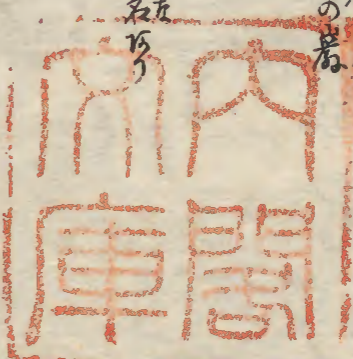 の巌
内閣
文庫